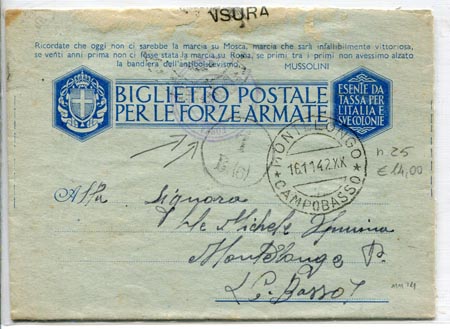 VSURA
Ricordate che oggi non ci sarebbe la marcia su Mosca, marcia che sarà infallibilmente vittoriosa,
se venti anni prima non ci fosse stata la marcia su Roma, se primi tra i primi non avessimo alzato
la bandiera dell'antibolscevismo.
MUSSOLINI
BIGLIETTO POSTALE
PER LE FORZE ARMATE
ESENTE DA
TASSA PER
L'ITALIA E
SVE COLONIE
MONTELONGO
16.11.42.XX
CAMPOBASSO
n. 25
€ 14,00
Alla Signora
Michele
Montelongo P.
(C. Basso)